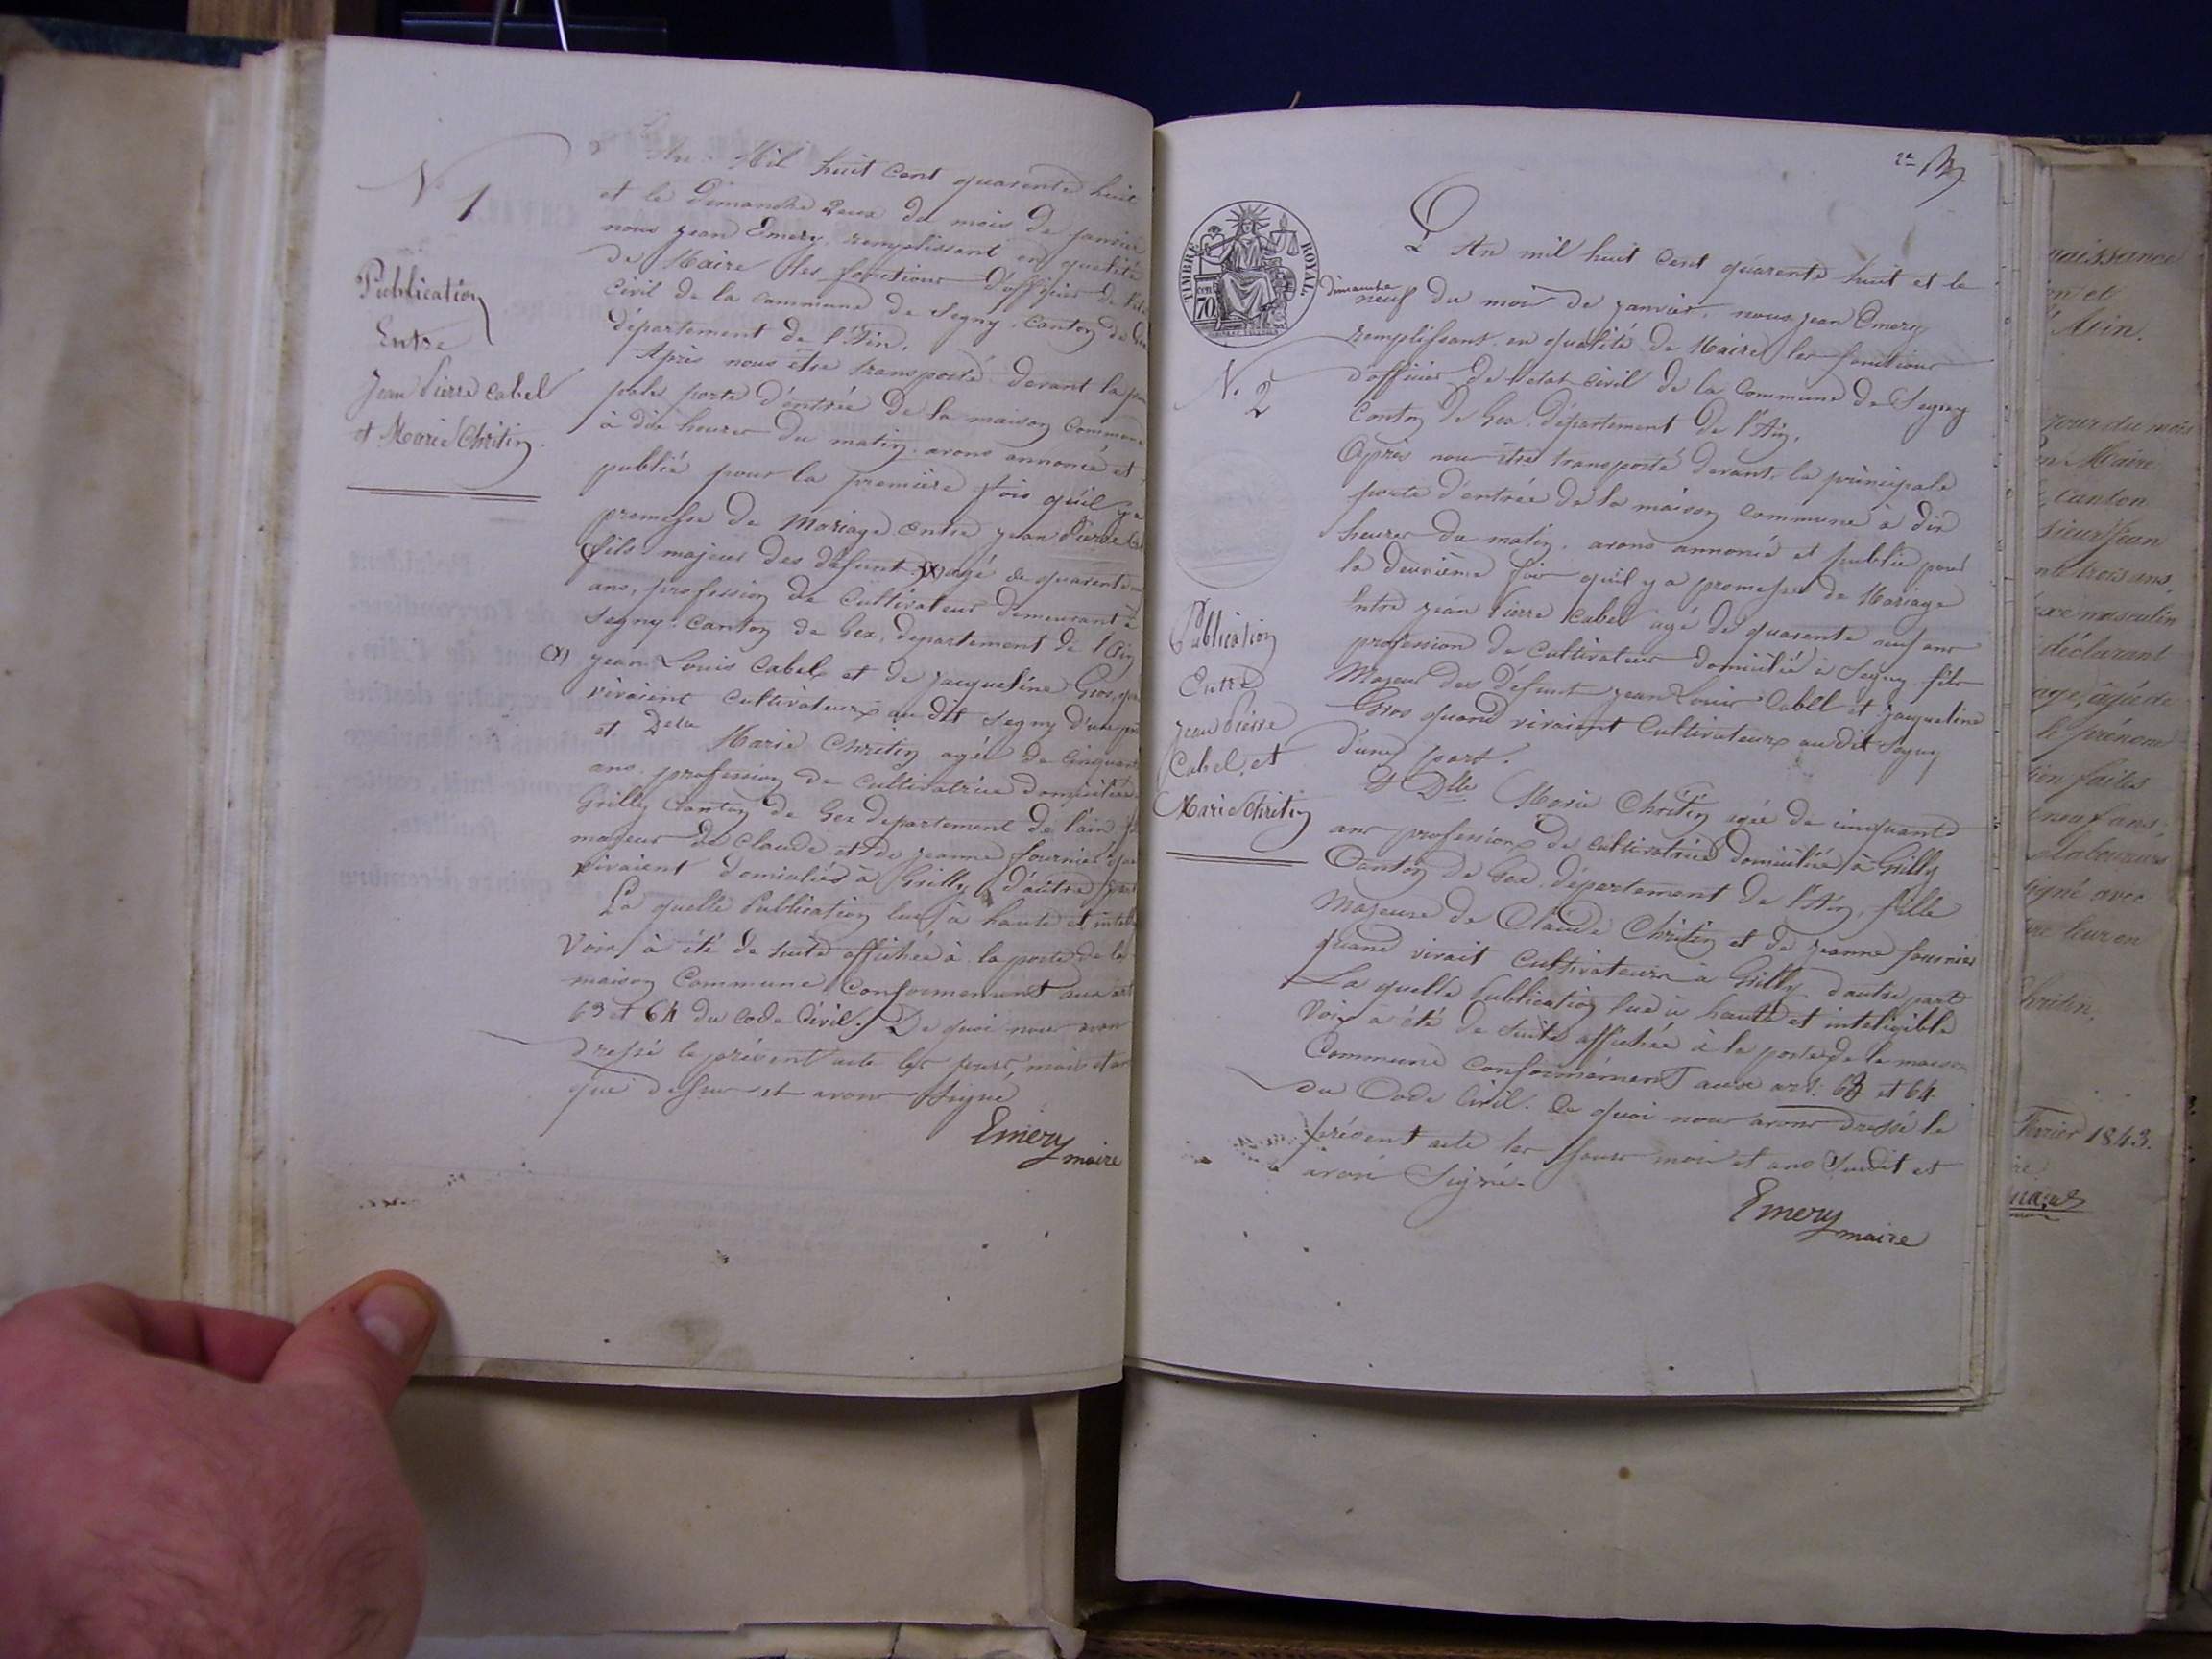 N° 1
Publication
Entre
Jean Pierre Cabel
et Marie Chritin.
L'An Mil huit Cent quarente huit
et le Dimanche deux du mois de janvier
nous jean Emery, remplissant en qualité
de Maire les fonctions d'officier de l'état
Civil de la commune de Segny, Canton de Gex
département de l'Ain.
Après nous être transporté devant la
pale porte d'entrée de la maison Commune
à dix heures du matin. avons annoncé et
publié pour la première fois qu'il y a
promesse de Mariage entre jean Pierre
fils majeur des défunt (x) agé de quarente
ans, profession de Cultivateur demeurant à
Segny. Canton de Gex, département de l'Ain
(x) jean Louis Cabel et de jacqueline Gros,
vivaient Cultivateurs au dit Segny d'une
et Delle Marie Chritin agée de Cinquante
ans. profession de Cultivatrice domiciliée
Grilly Canton de Gex département de l'ain
majeur de Claude et de jeanne fournier
vivaient domiciliés à Grilly d'autre part
La quelle Publication lue à haute et
Voix à été de suite affichée à la porte de la
maison Commune Conformement aux art
63 et 64 du Code Civil. De quoi nous avons
dressé le présent acte les jour, mois et an
que dessus et avons Signé
Emery
maire
2e
TIMBRE ROYAL
70
N. 2
Publication
Entre
Jean Pierre
Cabel, et
Marie Chritin
L'An mil huit Cent quarente huit et le
dimanche
neuf du mois de janvier, nous jean Emery
remplissant en qualité de Maire les fonctions
d'officier de l'etat civil de la commune de Segny
Canton de Gex, département de l'Ain.
Après nous être transporté devant la principale
porte d'entrée de la maison commune à dix
heures du matin, avons annoncé et publié pour
la deuxième fois qu'il y a promesse de Mariage
Entre jean Pierre Cabel agé de quarente neuf ans
profession de cultivateur domicilié à Segny fils
Majeur des défunt jean Louis Cabel et jacqueline
Gros quand vivaient Cultivateurs au dit Segny
d'une part.
Et Delle Marie Chritin agée de cinquante
ans profession de cultivatrice domiciliée à Grilly
Canton de Gex, département de l'Ain, fille
Majeure de Claude Chritin et de jeanne fournier
quand vivait Cultivateurs à Grilly d'autre part
La quelle Publication lue à haute et inteligible
Voix a été de Suite affichée à la porte de la maison
Commune conformément aux art. 63 et 64
du Code Civil. De quoi nous avons dressé le
présent acte les jour mois et ans Susdit et
avons Signé.
Emery
maire
naissance
l'Ain.
jour du mois
Maire
canton
sieur Jean
trois ans,
masculin
déclarant
age, agée de
le prénom
faites
neuf ans,
laboureur
signé avec
Chritin.
Fevrier 1843.